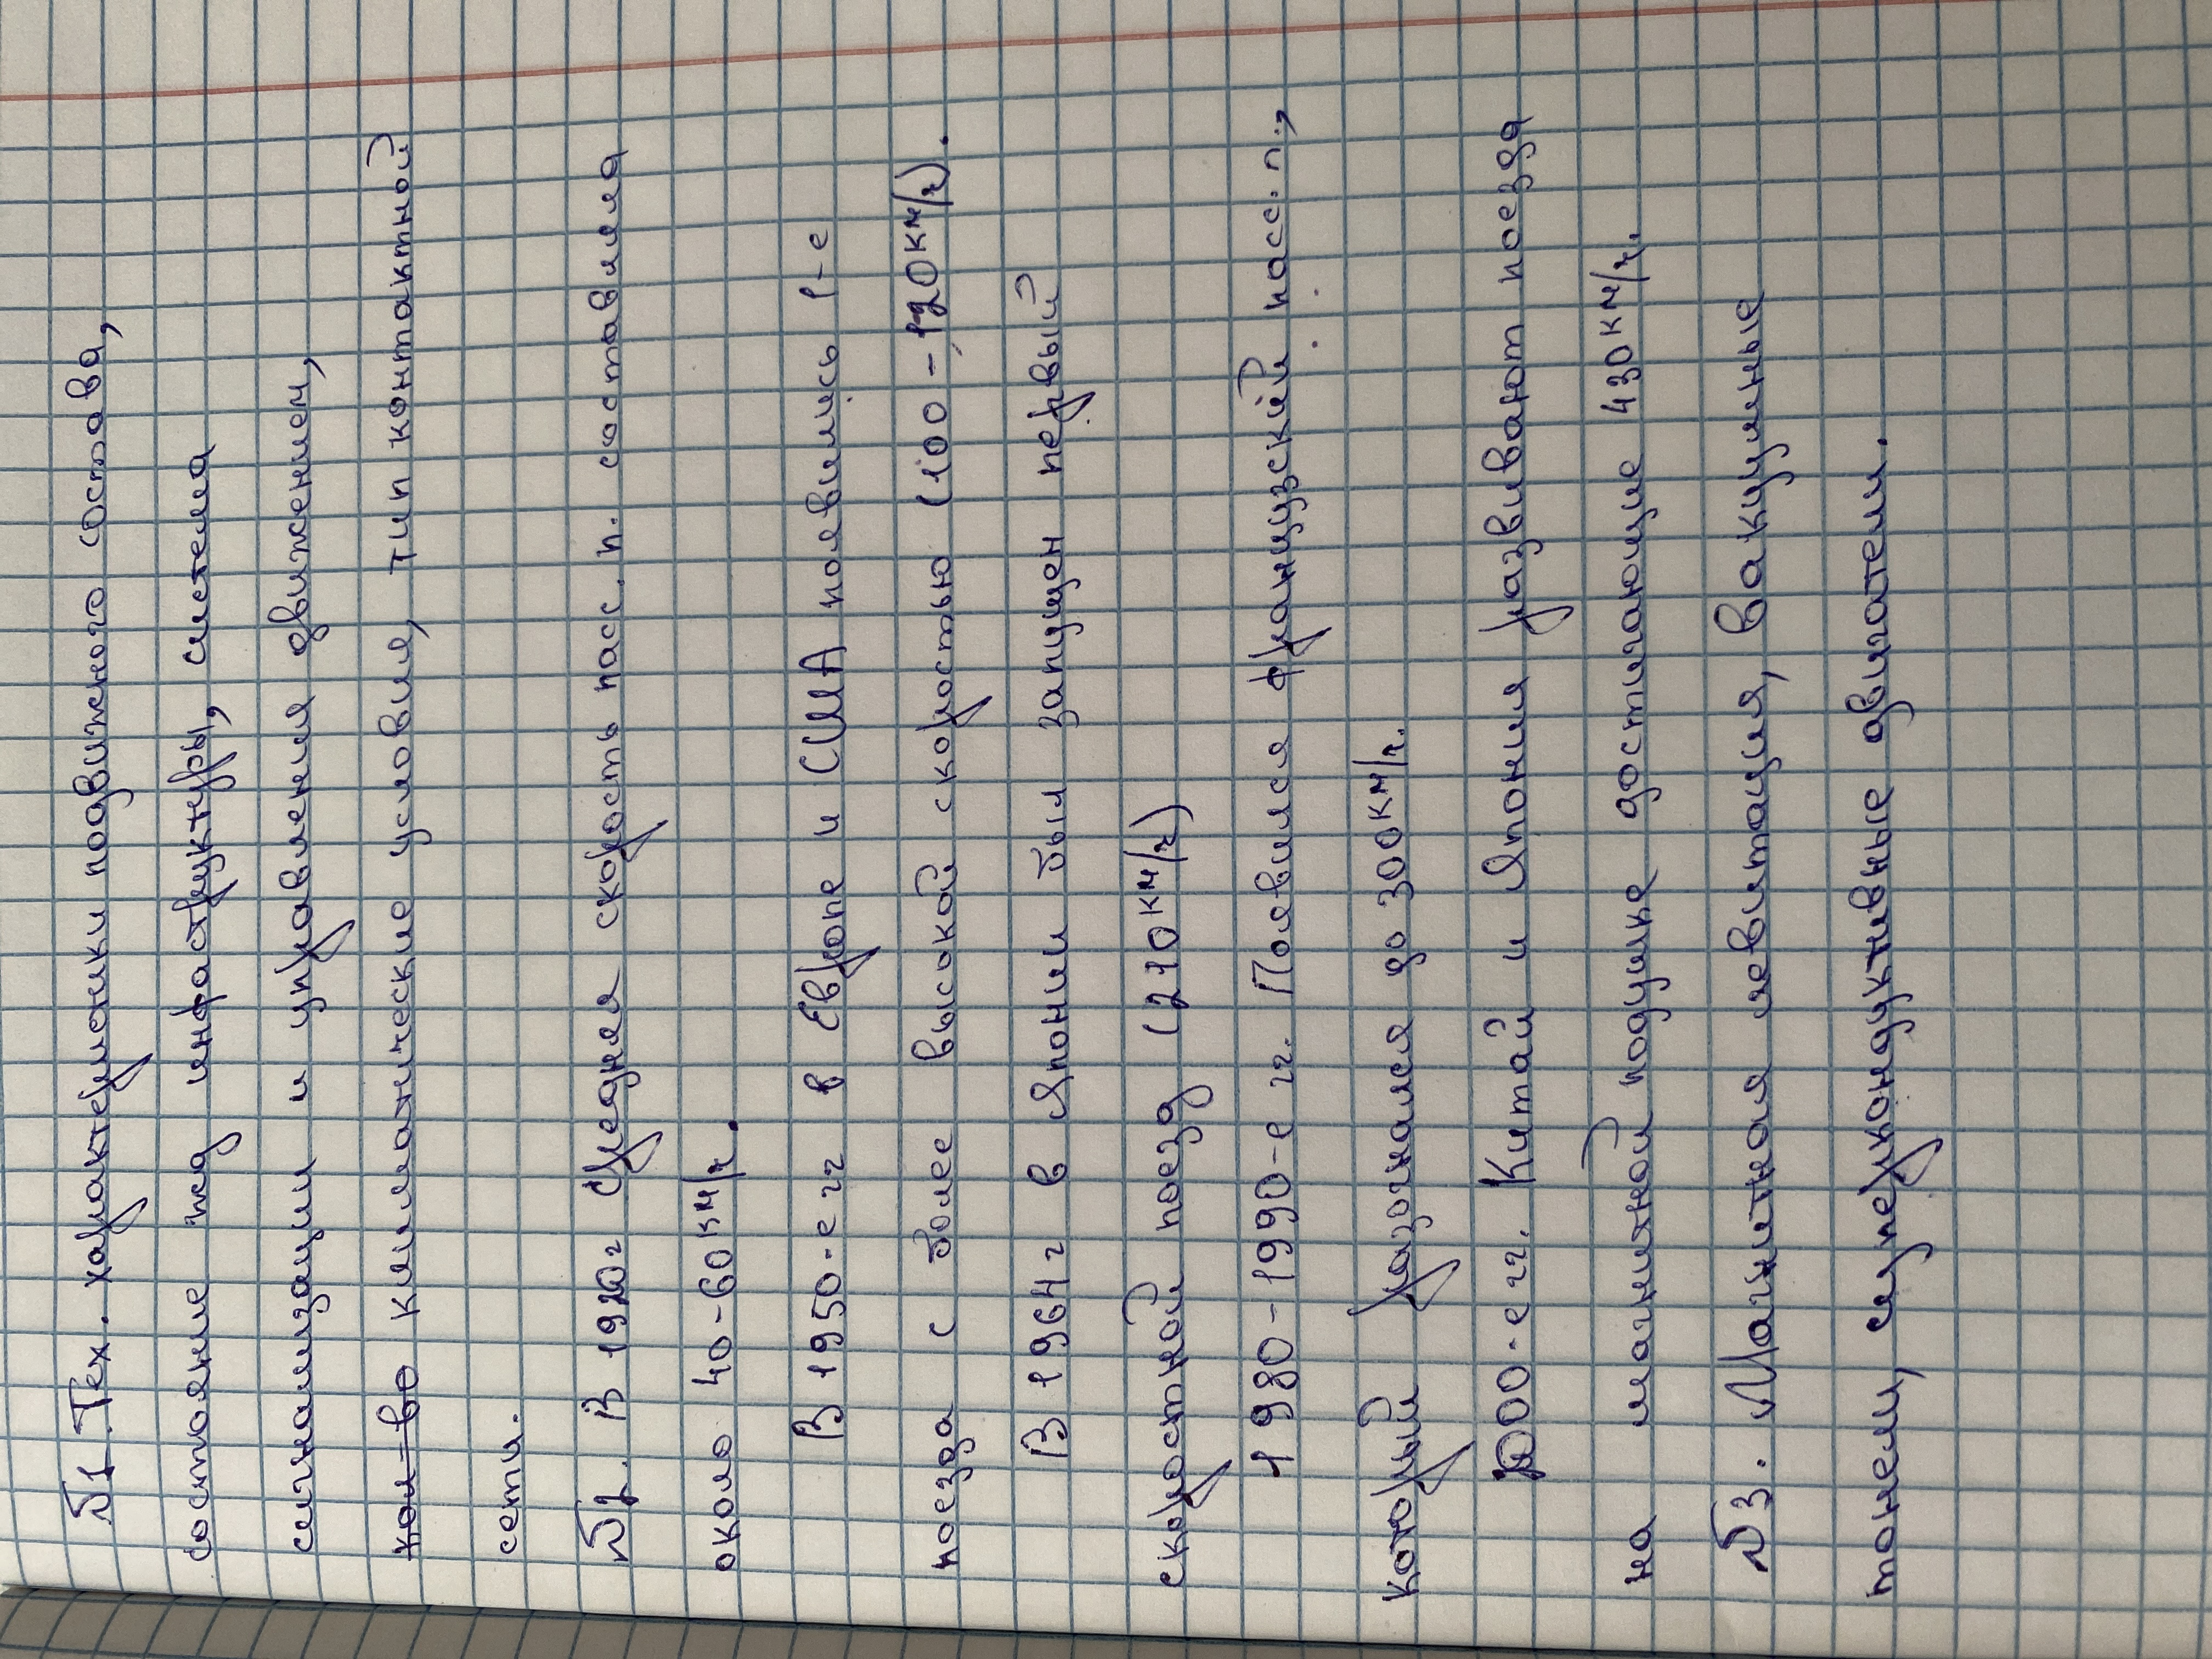 №1. Тех. характеристики подвижного состава,
состояние жд инфраструктуры, система
сигнализации и управления движением,
кол-во климатические условия, тип контактной
сети.
№2. В 1920г Средняя скорость пас. п. составляла
около 40-60км/ч.
В 1950-е гг в Европе и США появились 1-е
поезда с более высокой скоростью (100-120км/ч).
В 1964г в Японии был запущен первый
скоростной поезд (210км/ч)
1980-1990-е гг. Появился французский пасс. п.,
который разогнался до 300км/ч.
2000-е гг. Китай и Япония развивают поезда
на магнитной подушке достигающие 430км/ч.
№3. Магнитная левитация, вакуумные
тонели, суперкондуктивные двигатели.